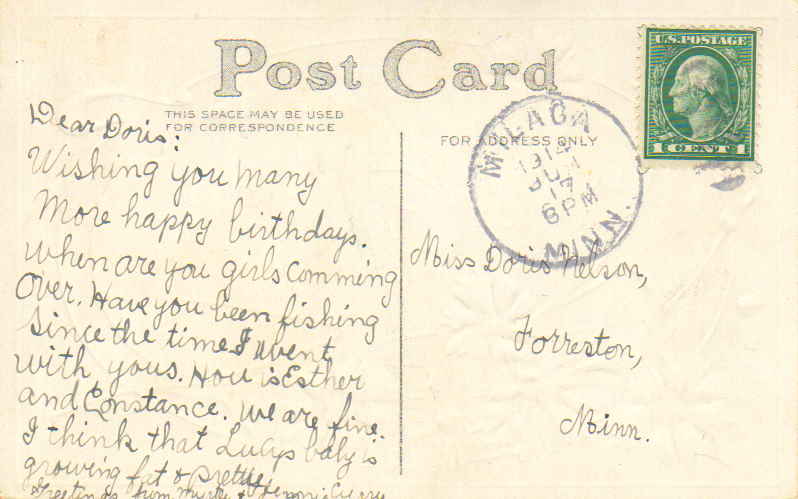 Post Card
THIS SPACE MAY BE USED
FOR CORRESPONDENCE
FOR ADDRESS ONLY
U.S. POSTAGE
1 CENT 1
MILACA
1914
17
6 PM
MINN.
Dear Doris:
Wishing you many
More happy birthdays.
when are you girls comming
Over. Have you been fishing
since the time I went
with yous. How is Esther
and Constance. We are fine.
I think that Lucys baby is
growing fat &
Greetings from
Miss Doris Nelson,
Forreston,
Minn.